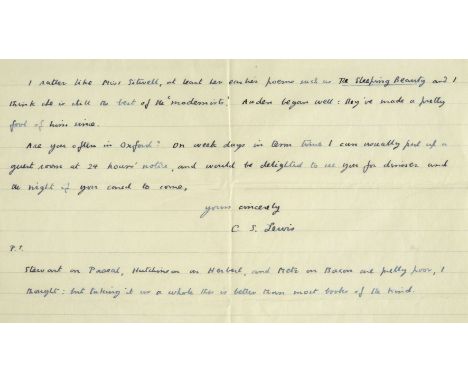 I rather like Miss Sitwell, at least her earlier poems such as The Sleeping Beauty and I
think she is still the best of the 'modernists'. Auden began well: they've made a pretty
fool of him since.
Are you often in Oxford? On week days in term time I can usually put up a
guest room at 24 hours' notice, and would be delighted to see you for dinner and
the night if you cared to come.
yours sincerely
C. S. Lewis
P.S.
Stewart on Pascal, Hutchinson on Herbert, and Metz on Bacon are pretty poor, I
thought: but taking it as a whole this is better than most books of the kind.